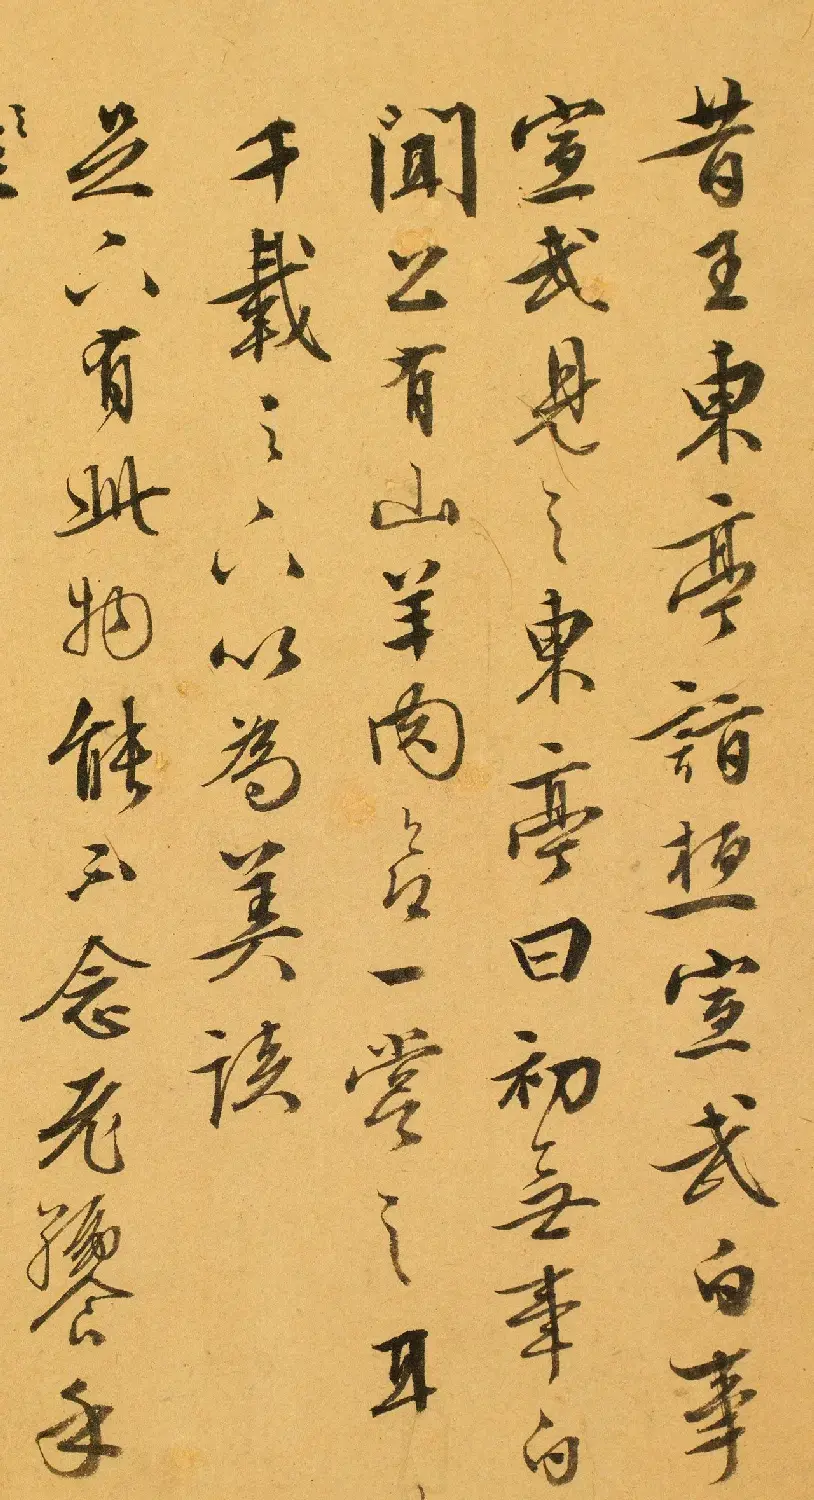 昔王東亭詣桓宣武白事
宣武見之東亭曰初無事白
聞公有山羊肉一嘗之耳
千載之亦以為美談
亦有此物能不念老饕乎